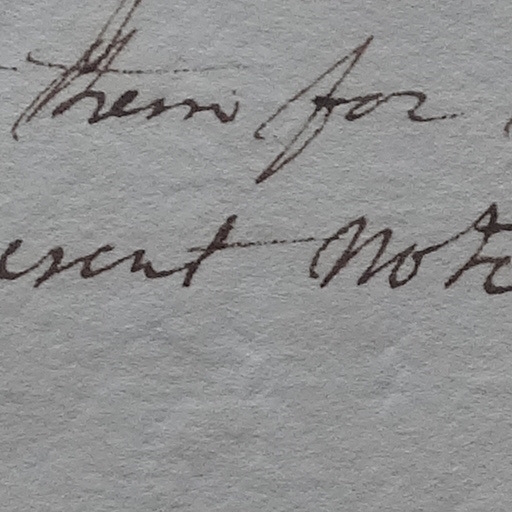 them for
esent Note